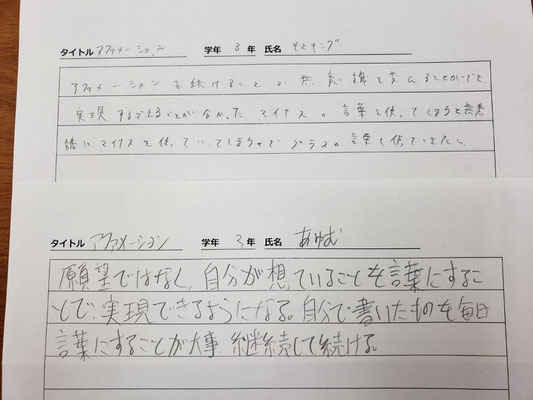 タイトル アファメーション 学年 3 年 氏名
アファメーションを続けることで無意識を変えることができ
実現することができることが分かった マイナスの言葉を使ってしまうと無意
識にマイナスを使っていってしまうのでプラスの言葉を使っていきたい
タイトル アファメーション 学年 3 年 氏名 あゆむ
願望ではなく、自分が想っていることを言葉にするこ
とで、実現できるようになる。自分で書いたものを毎日
言葉にすることが大事 継続して続ける。